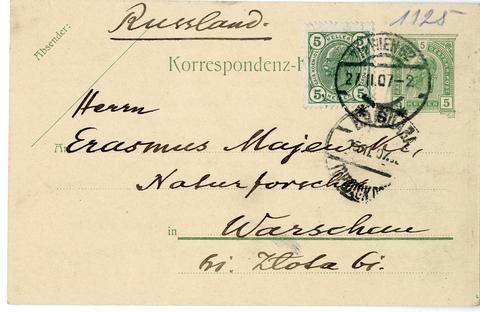 Russland.
1125
Absender:
Korrespondenz-
5 HELLER 5
5 5
27 II 07-2
Herrn
Erasmus Majewski,
Naturforscher
in Warschau
Złota